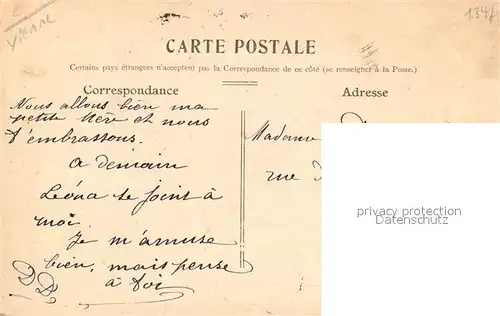 Vienne
134
CARTE POSTALE
Certains pays étrangers n'acceptent pas la Correspondance de ce côté (se renseigner à la Poste.)
Correspondance
Adresse
Nous allons bien ma
petite Mère et nous
t'embrassons.
a demain
Léona se joint à
moi.
Je m'amuse
bien, mais pense
à toi
Madame
rue
privacy protection